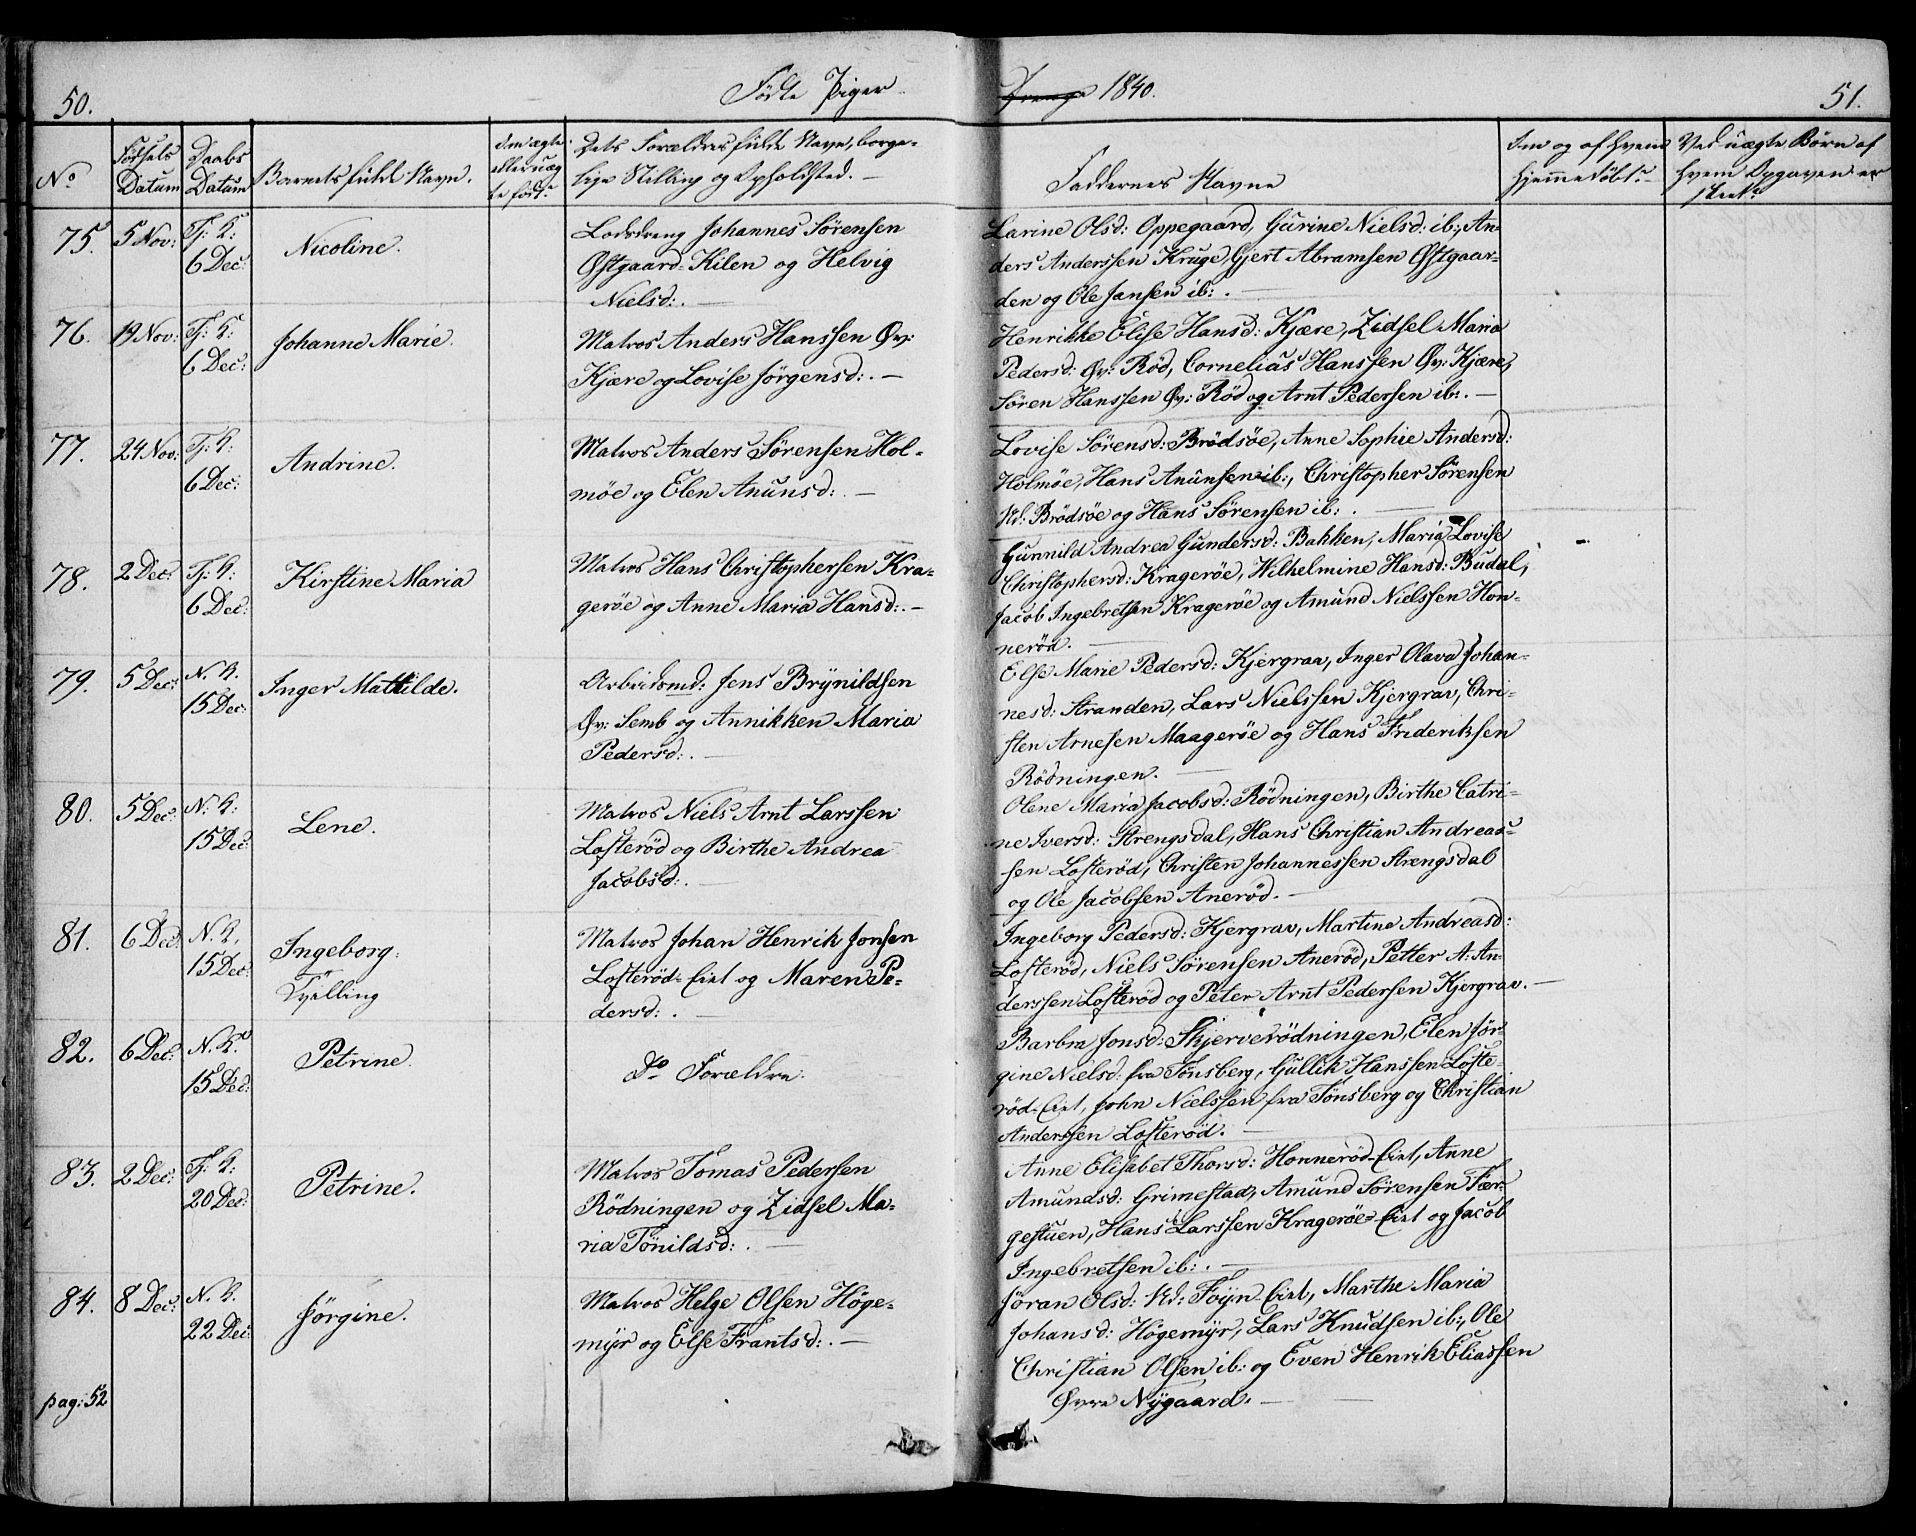 50.
Födte Piger
Drenge 1840.
51.
No
Fødsels Datum
Daabs Datum
Barnets fulde Navn.
Om ægte eller uæg te født.
Dets Forældres fulde Navn, borger-
lige Stilling og Opholdsted. —
Faddernes Navne
Om og af hvem
hjemmedöbt.
Ved uægte Börn af
hvem Opgaven er
skeet.
75. 5 Nov: Tj: K: 6 Dec: Nicoline.
Lodsdreng Johannes Sörensen
Östgaard-Kilen og Helvig
Nielsd:. —
Larine Olsd: Oppegaard, Gurine Nielsd: ib:, An-
ders Anderssen Kruge, Gjert Abramsen Östgaar-
den og Ole Jansen ib:. —
76. 19 Nov: Tj: K: 6 Dec: Johanne Marie.
Matros Anders Hanssen Öv:
Kjære og Lovise Jörgensd:. —
Henrikke Elise Hansd: Kjære, Zidsel Maria
Pedersd: Öv: Röd, Cornelius Hanssen Öv: Kjære,
Sören Hanssen Öv: Röd og Arnt Pedersen ib:. —
77. 24 Nov: Tj: K: 6 Dec: Andrine.
Matros Anders Sörensen Hol-
möe og Elen Anunsd:. —
Lovise Sörensd: Brödsöe, Anne Sophie Andersd:
Holmöe, Hans Anunsen ib:, Christopher Sörensen
Nd: Brödsöe og Hans Sörensen ib:. —
78. 2 Dec: Tj: K: 6 Dec: Kirstine Maria
Matros Hans Christophersen Kra-
geröe og Anne Maria Hansd:. —
Gunnild Andrea Gundersd: Bakken, Maria Lovise
Christophersd: Krageröe, Wilhelmine Hansd: Budal,
Jacob Ingebretsen Krageröe og Amund Nielssen Hon-
neröd. —
79. 5 Dec: N. K. 15 Dec: Inger Mathilde.
Arbeidsmd: Jens Brynildsen
Öv: Semb og Annikken Maria
Pedersd:. —
Else Marie Pedersd: Kjergrav, Inger Olava Johan-
nesd: Stranden, Lars Nielssen Kjergrav, Chri-
sten Arnesen Maageröe og Hans Frederiksen
Rödningen. —
80. 5 Dec: N. K: 15 Dec: Lene.
Matros Niels Arnt Larssen
Lofteröd og Birthe Andrea
Jacobsd:. —
Olene Maria Jacobsd: Rödningen, Birthe Catri-
ne Iversd: Strengsdal, Hans Christian Andreas-
sen Lofteröd, Christen Johannessen Strengsdal
og Ole Jacobsen Aneröd. —
81. 6 Dec: N. K. 15 Dec: Ingeborg.
Tvilling
Matros Johan Henrik Jonsen
Lofteröd-Eiet og Maren Pe-
dersd:. —
Ingeborg Pedersd: Kjergrav, Martine Andreasd:
Lofteröd, Niels Sörensen Aneröd, Petter A: An-
derssen Lofteröd og Peter Arnt Pedersen Kjergrav. —
82. 6 Dec: N. K. 15 Dec: Petrine.
Do Forældre.
Barbra Jonsd: Skjerverödningen, Elen Jör-
gine Nielsd: fra Tönsberg, Gullik Hanssen Lofte-
röd-Eiet, John Nielssen fra Tönsberg og Christian
Anderssen Lofteröd. —
83. 2 Dec: Tj: K: 20 Dec: Petrine.
Matros Tomas Pedersen
Rödningen og Zidsel Ma-
ria Tönildsd:. —
Anne Elisabet Thorsd: Honneröd-Eiet, Anne
Amundsd: Grimestad, Amund Sörensen Fær-
gestuen, Hans Larssen Krageröe-Eiet og Jacob
Ingebretsen ib:. —
84. 8 Dec: N. K. 22 Dec: Jörgine.
Matros Helge Olsen Höge-
myr og Else Frantsd:. —
Jöran Olsd: Nd: Foyn-Eiet, Marthe Maria
Johansd: Högemyr, Lars Knudsen ib:, Ole
Christian Olsen ib: og Even Henrik Eliassen
Övre Nygaard. —
pag: 52